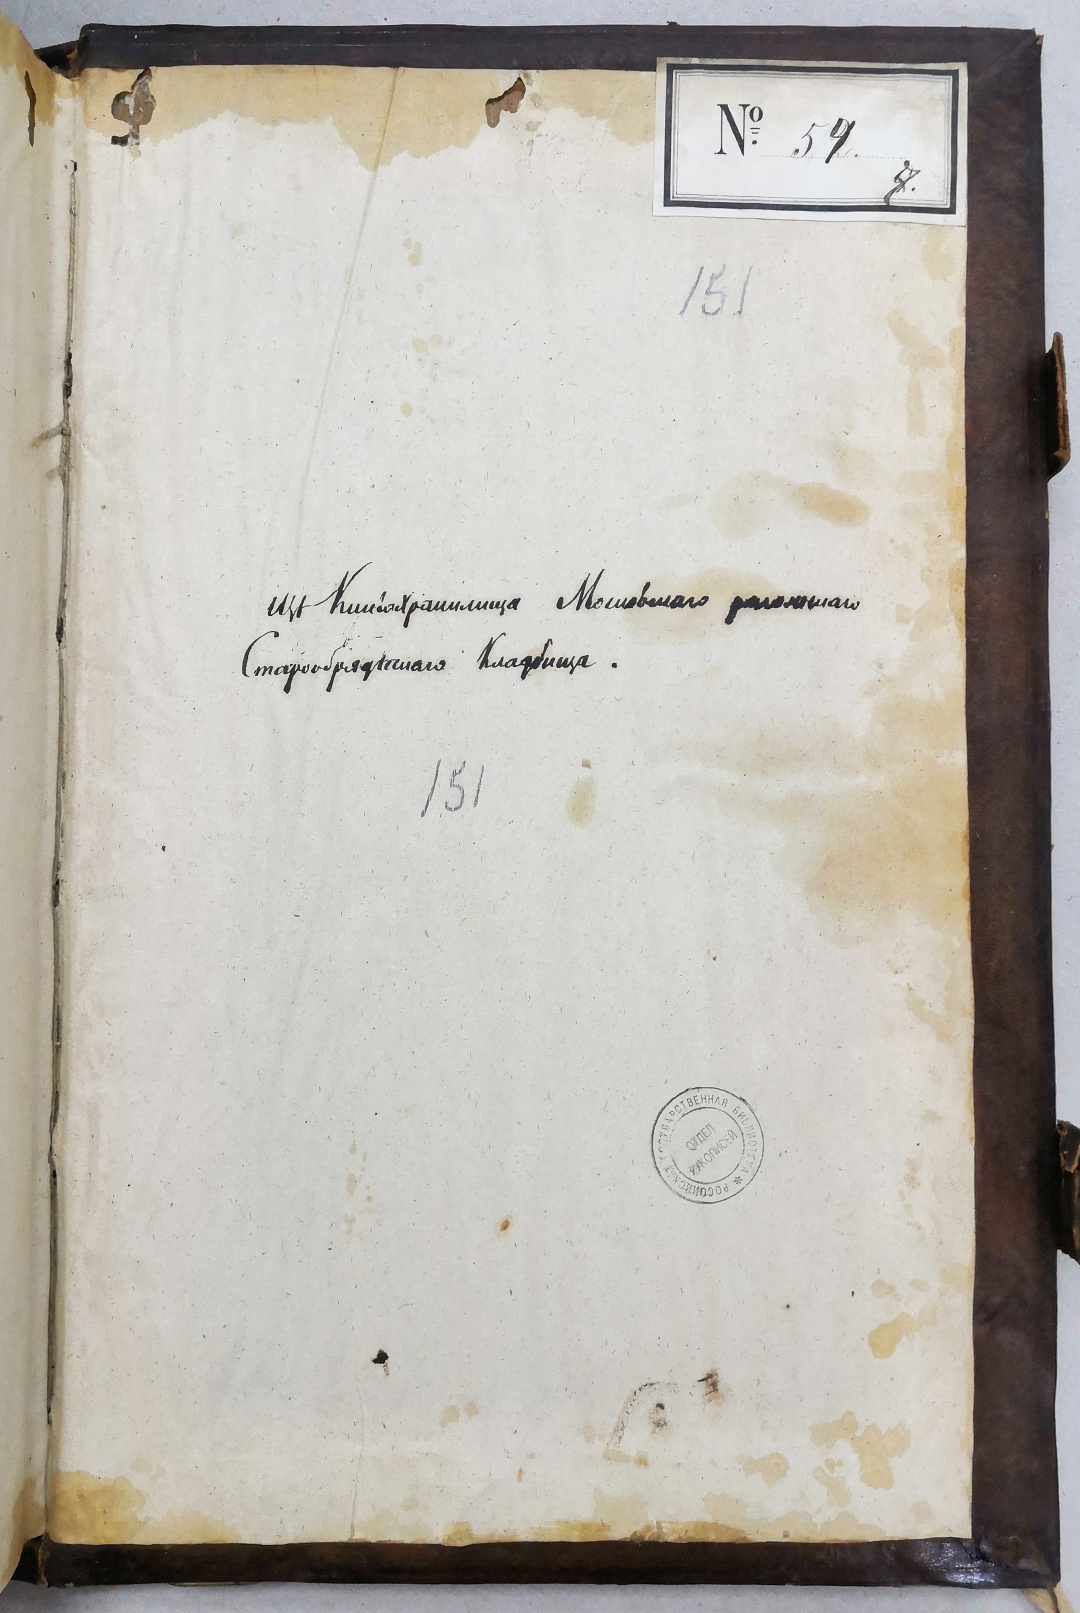 № 59.
151
изъ Книгохранилища Московскаго рогожскаго
Старообрядческаго Кладбища.
151
РОССИЙСКАЯ ГОСУДАРСТВЕННАЯ БИБЛИОТЕКА *
ОТДЕЛ
РУКОПИСЕЙ